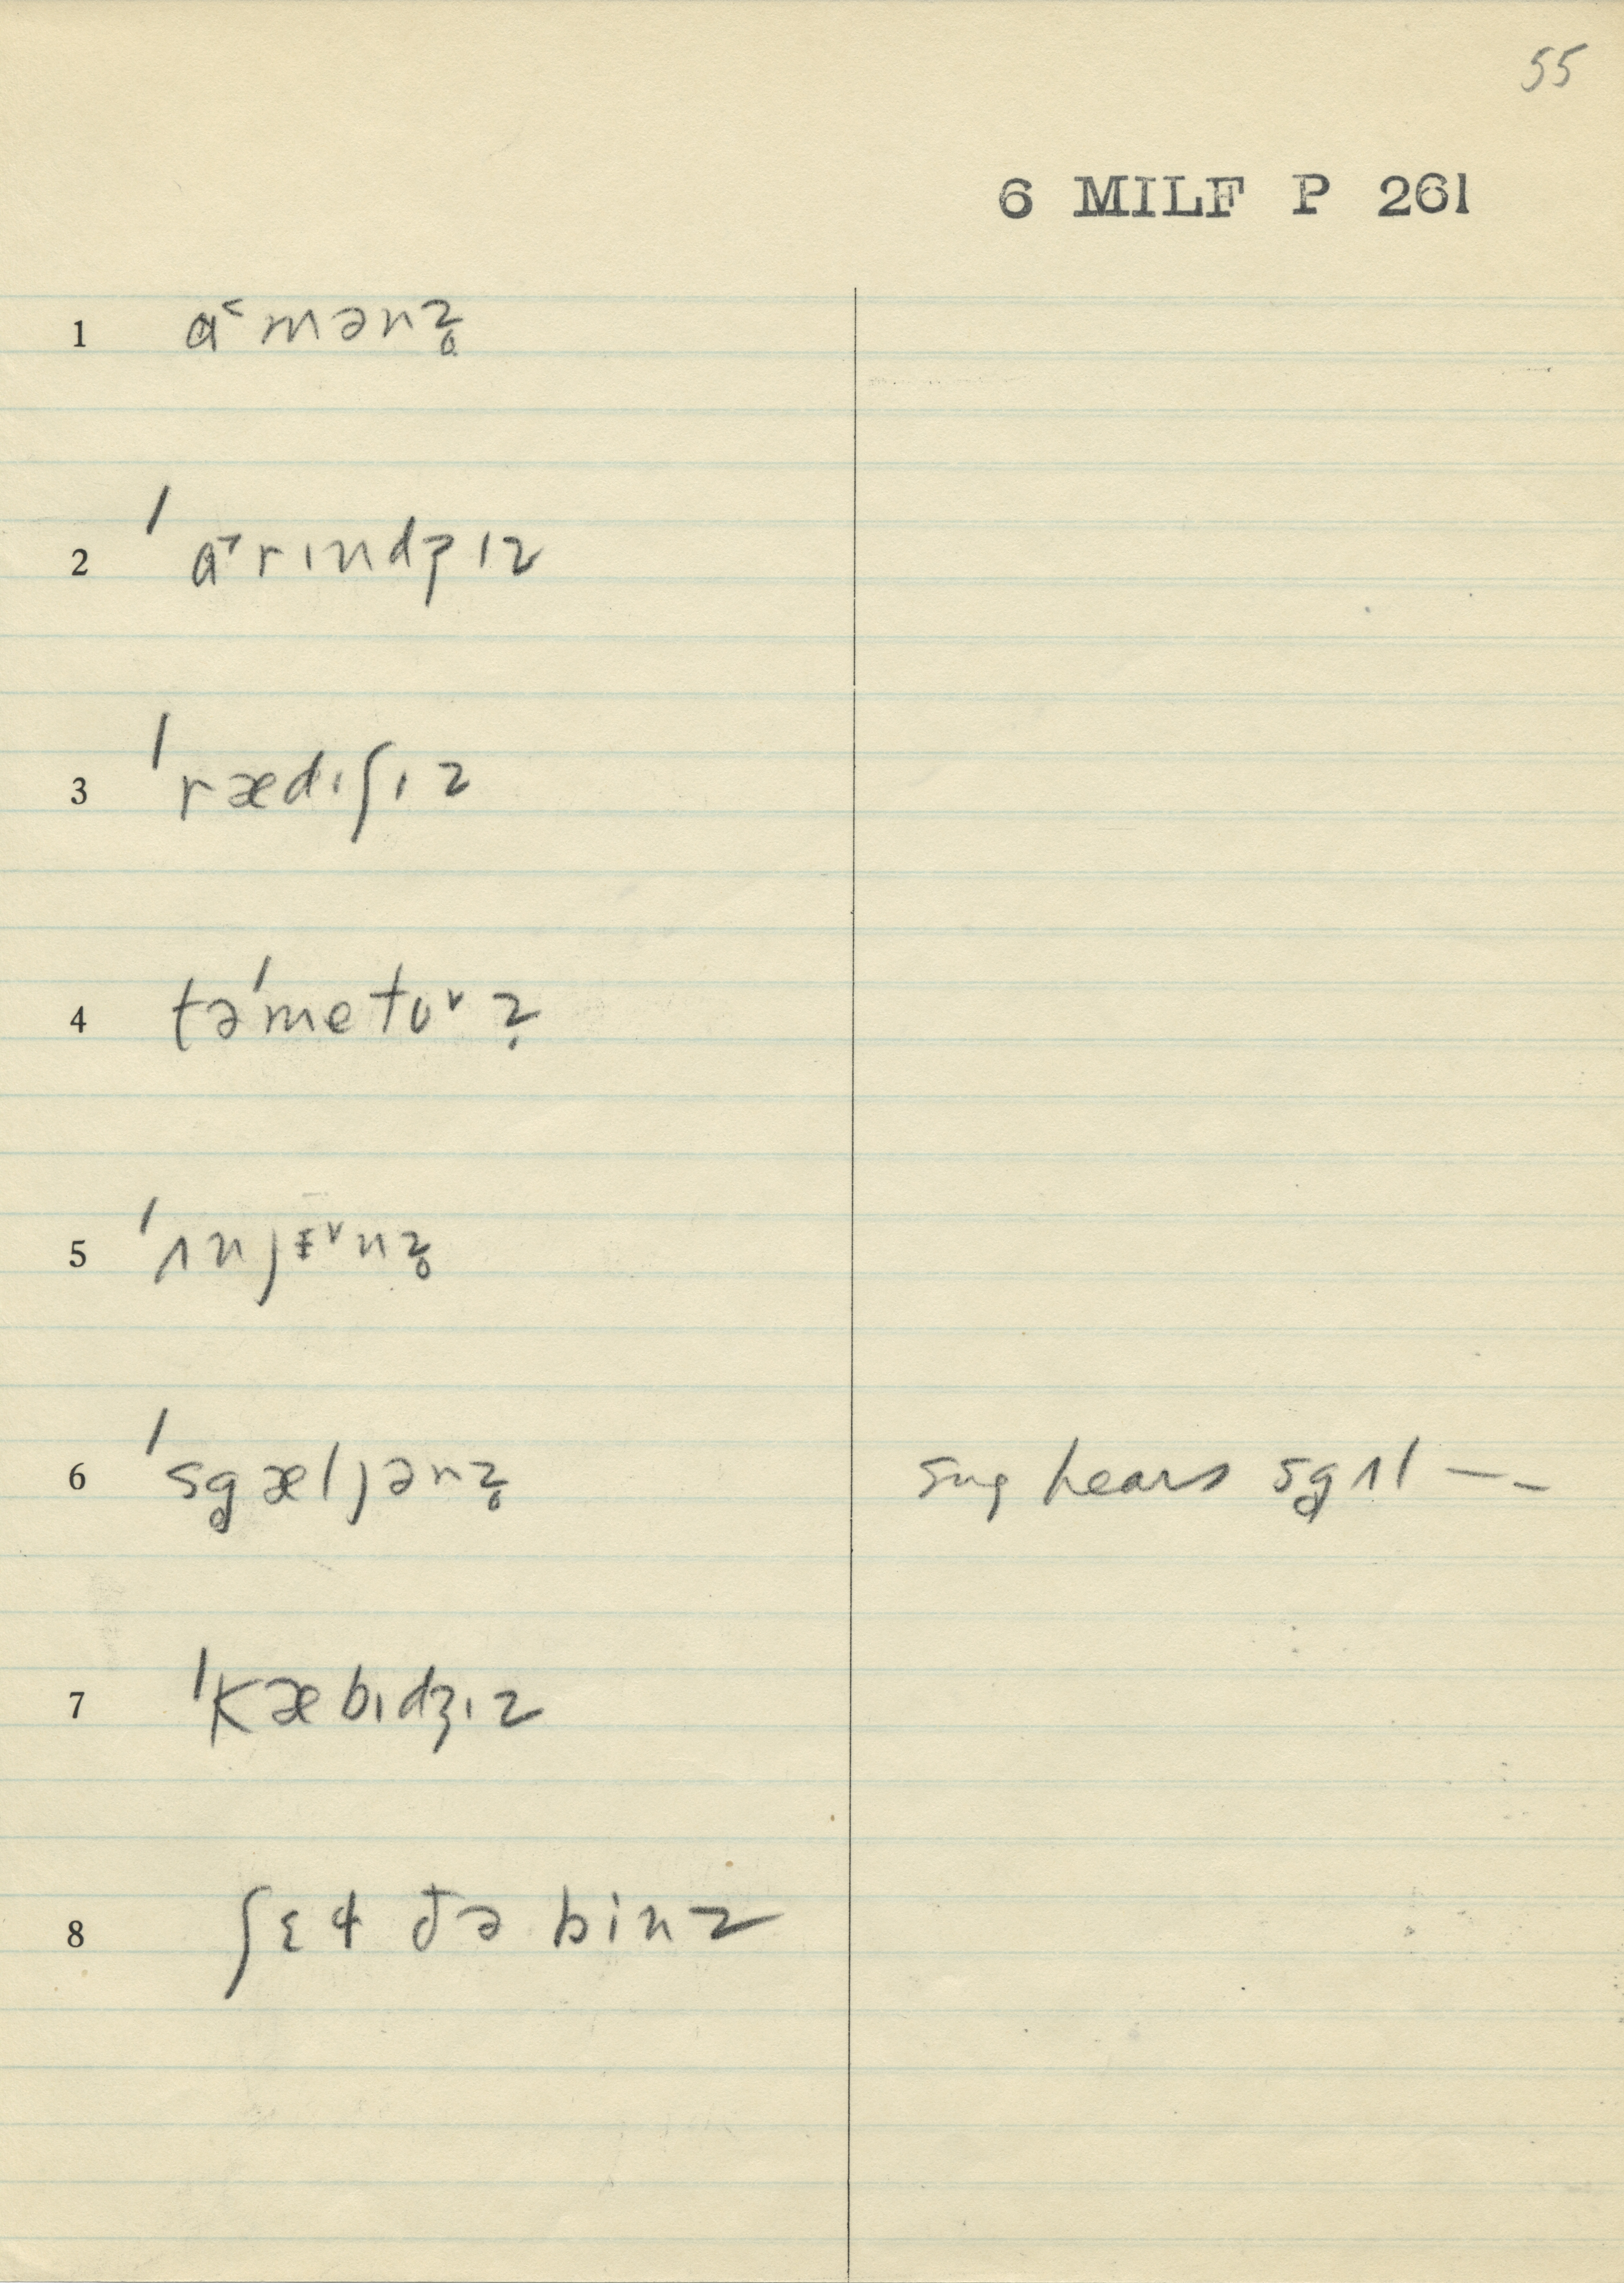 55
6 MILF P 261
1 ɑ˂mənz̥
2 ˈɑ˃rɪndʒɪz
3 ˈrædɪʃɪz
4 təˈmetoᵛz̩
5 ˈʌnjɪ̵ᵛnz̥
6 ˈsgæljənz̥ sng hears sgʌl – –
7 ˈkæbɪdʒɪz
8 ʃɛɫ ðə binz